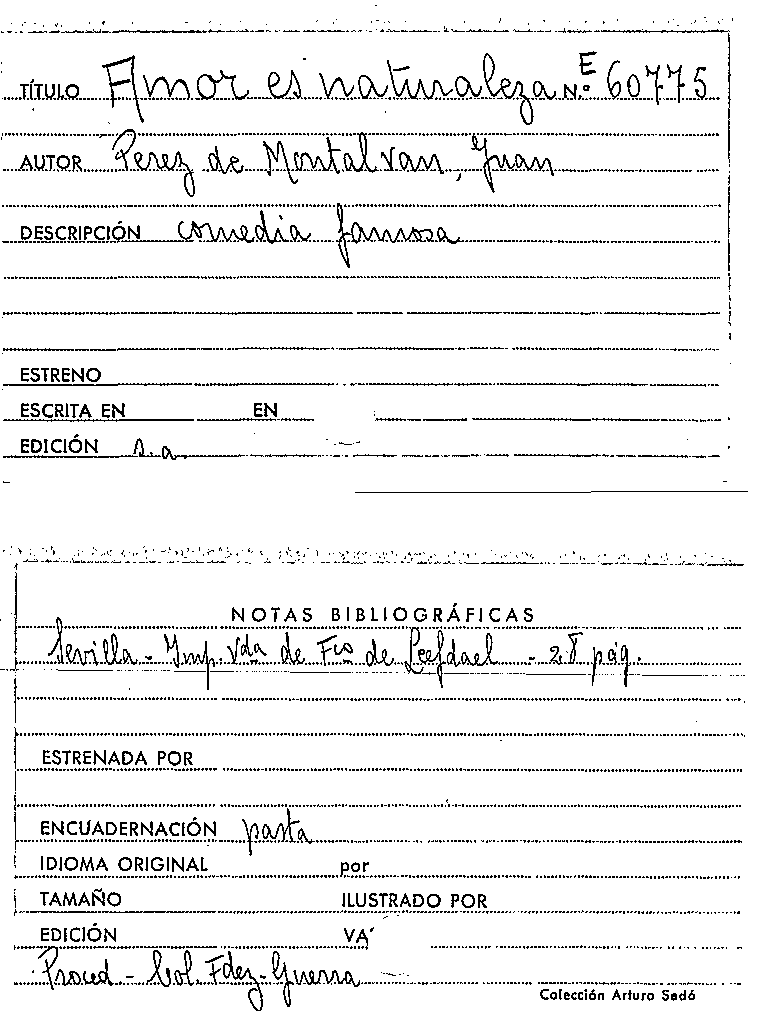 TÍTULO Amor es naturaleza N.º E 60775
AUTOR Perez de Montalvan, Juan
DESCRIPCIÓN comedia famosa
ESTRENO
ESCRITA EN EN
EDICIÓN s.a.
NOTAS BIBLIOGRÁFICAS
Sevilla - Imp. Vda de Fco de Leefdael - 28 pág.
ESTRENADA POR
ENCUADERNACIÓN pasta
IDIOMA ORIGINAL por
TAMAÑO ILUSTRADO POR
EDICIÓN VA
Proced - Col. Fdez-Guerra
Colección Arturo Sedó